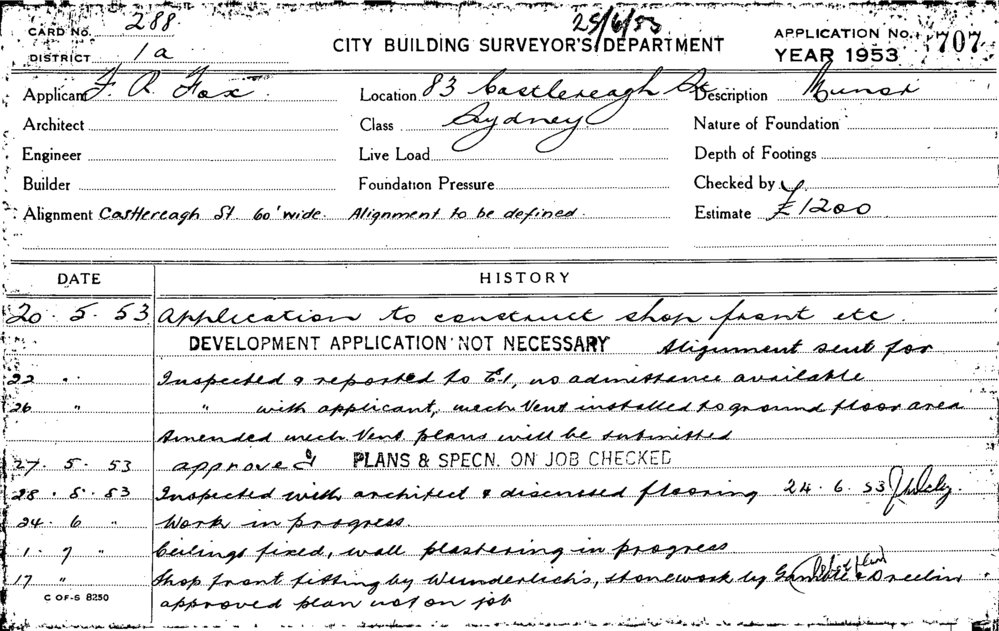 25/6/53
CARD No. 288
CITY BUILDING SURVEYOR'S DEPARTMENT
APPLICATION No. 707
DISTRICT 1a
YEAR 1953
Applicant F. R. Fox. Location 83 Castlereagh St Description Minor
Architect Class Sydney Nature of Foundation
Engineer Live Load Depth of Footings
Builder Foundation Pressure Checked by
Alignment Castlereagh St 60' wide. Alignment to be defined. Estimate £1200
DATE HISTORY
20. 5. 53 Application to construct shop front etc.
DEVELOPMENT APPLICATION NOT NECESSARY Alignment sent for
22 " Inspected & reported to E.1, no admittance available
26 " " with applicant, mech. Vent installed to ground floor area
Amended mech. Vent plans will be submitted
27. 5. 53 approved PLANS & SPECN. ON JOB CHECKED
28. 5. 53 Inspected with architect & discussed flooring 24. 6. 53
24. 6 " Work in progress.
1. 7 " Ceilings fixed, wall plastering in progress
17 " Shop front fitting by Wunderlich's, stonework by Gamble &
C OF-S 8250 approved plan not on job